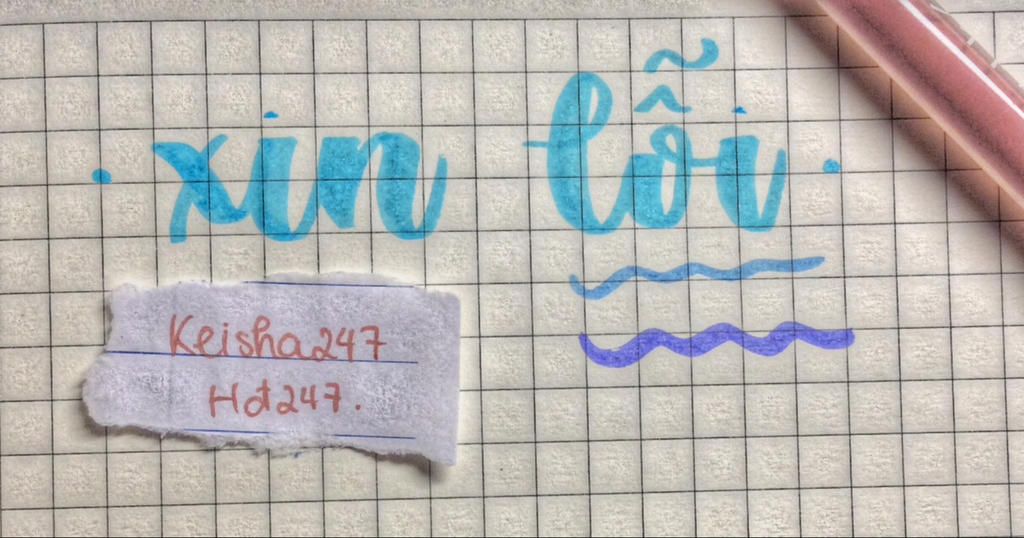 xin lỗi
Keisha247
Hd247.